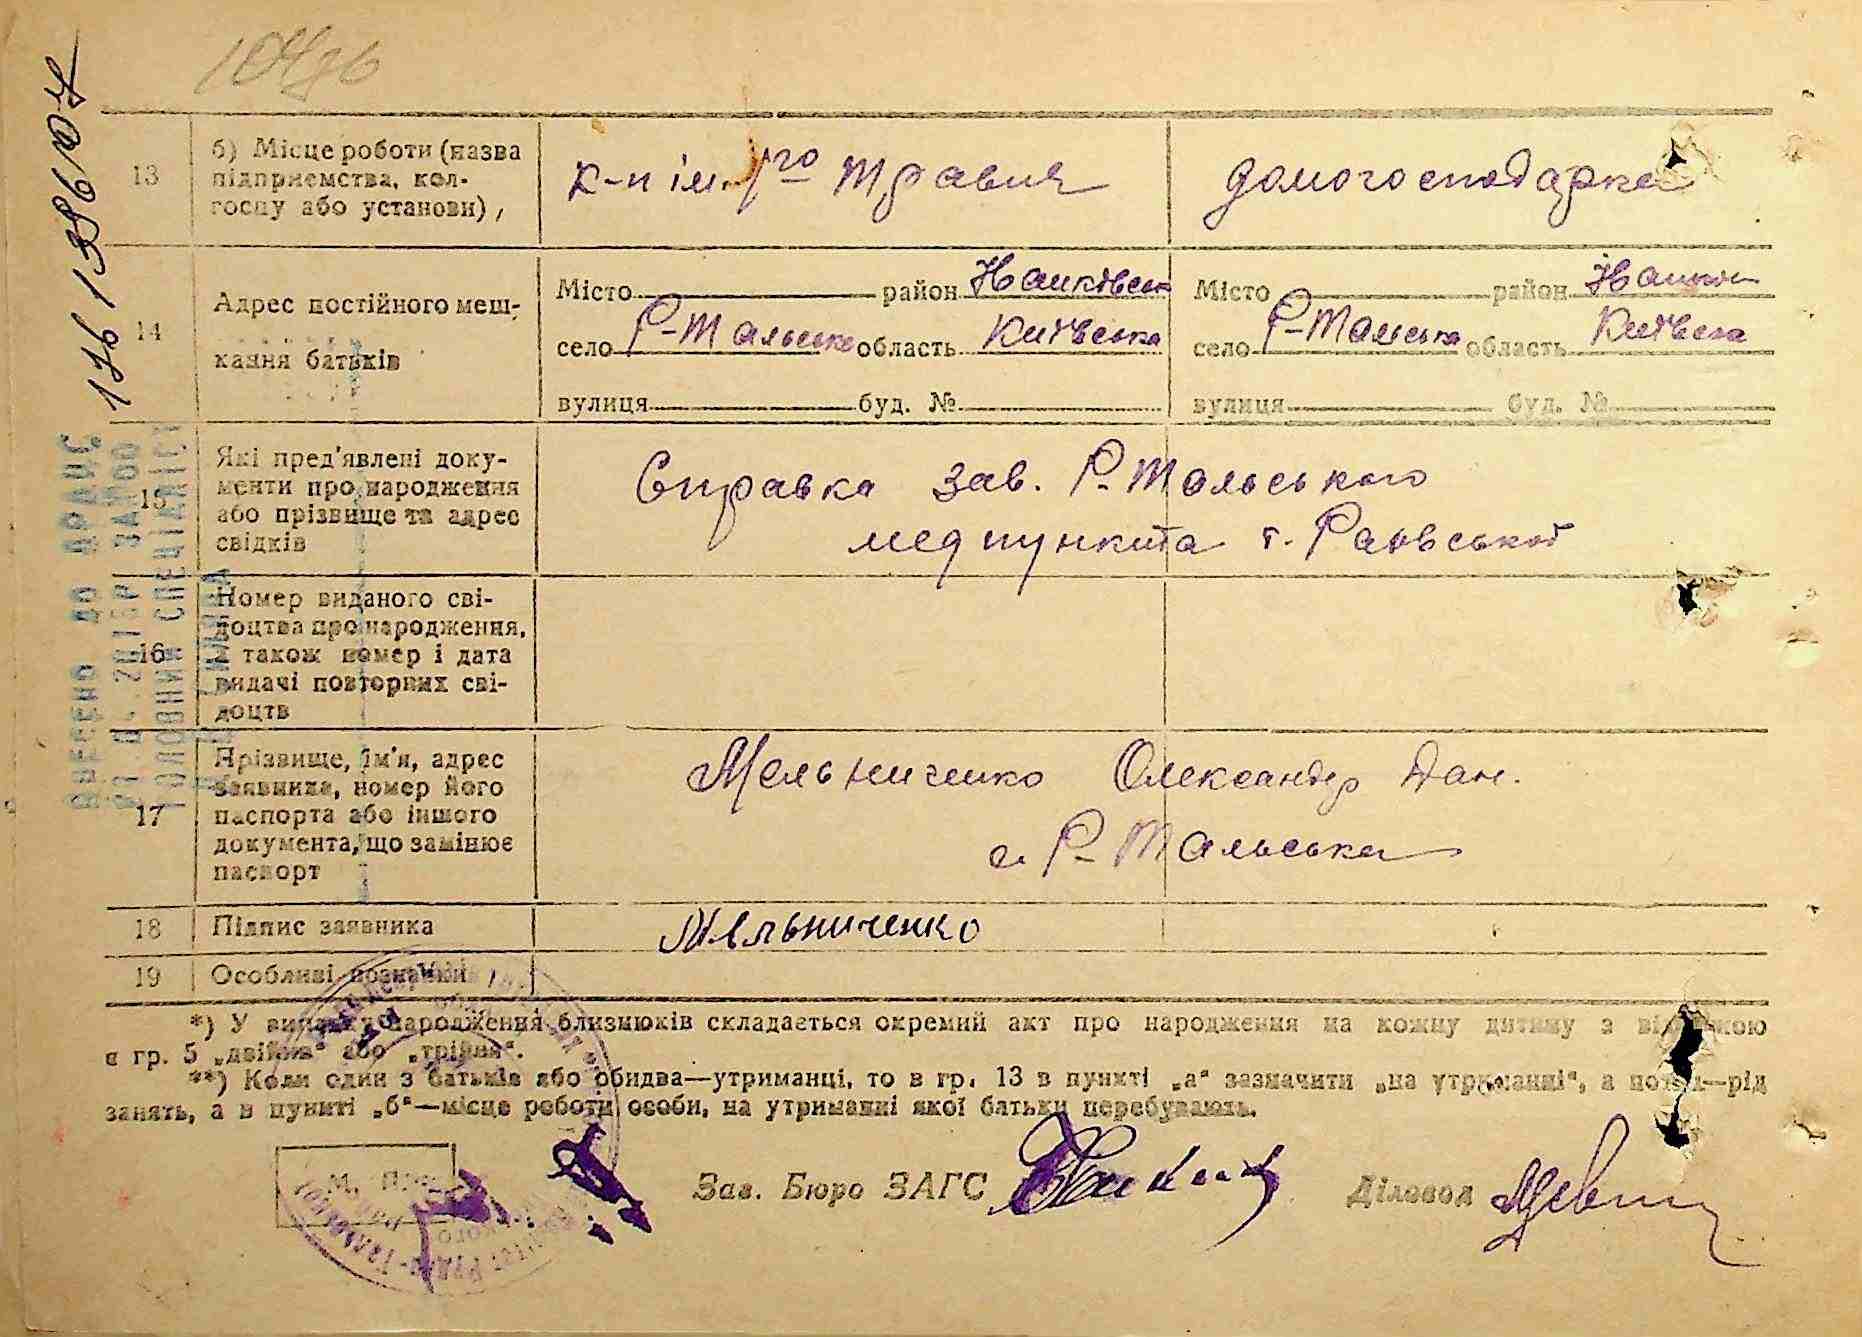 13
б) Місце роботи (назва
підприємства, кол-
госпу або установи),
к-п ім. 1го травня
домогосподарка
14
Адрес постійного меш-
кання батьків
Місто район Іванківськ
село Р-Тальське область Київська
вулиця буд. №
Місто район Іванків
село Р-Тальська область Київська
вулиця буд. №
15
Які пред'явлені доку-
менти про народження
або прізвище та адрес
свідків
Справка зав. Р-Тальського
медпункта т. Раєвської
16
Номер виданого сві-
доцтва про народження,
а також номер і дата
видачі повторних сві-
доцтв
17
Прізвище, ім'я, адрес
заявника, номер його
паспорта або іншого
документа, що замінює
паспорт
Мельниченко Олександр Дан.
с. Р-Тальська
18
Підпис заявника
Мельниченко
19
Особливі познайки
*) У випадку народження близнюків складається окремий акт про народження на кожну дитину з відміткою
в гр. 5 „двійня" або „трійня".
**) Коли один з батьків або обидва—утриманці, то в гр. 13 в пункті „а" зазначити „на утриманні", а потім—рід
занять, а в пункті „б"—місце роботи особи, на утриманні якої батьки перебувають.
М. П.
Зав. Бюро ЗАГС
Діловод
ВНЕСЕНО ДО ДРАЦС
ГОЛОВНИЙ СПЕЦІАЛІСТ